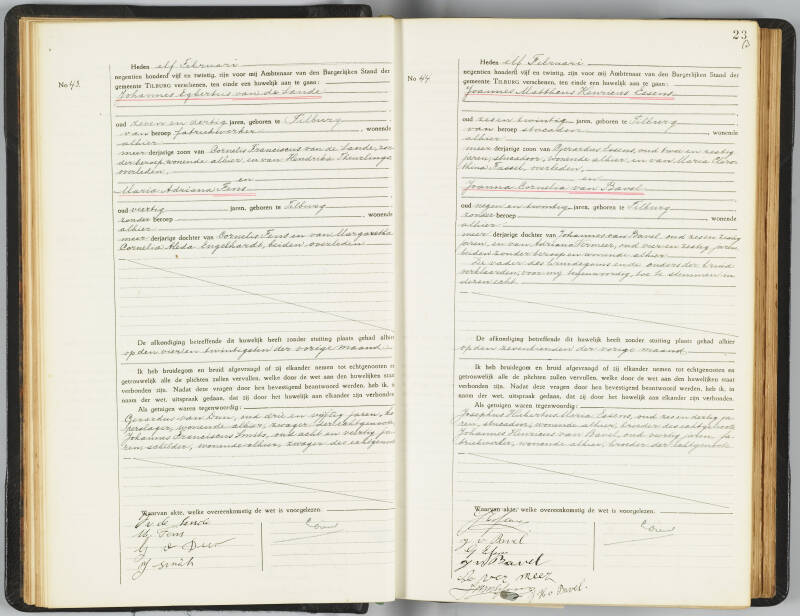 No 43.
Heden elf Februari
negentien honderd vijf en twintig, zijn voor mij Ambtenaar van den Burgerlijken Stand der
gemeente TILBURG verschenen, ten einde een huwelijk aan te gaan:
Johannes Egbertus van de Lande
oud zeven en dertig jaren, geboren te Tilburg
van beroep fabriekwerker, wonende
alhier
meerderjarige zoon van Cornelis Franciscus van de Lande, zon
der beroep wonende alhier, en van Hendrika
overleden,
en
Maria Adriana Fens
oud veertig jaren, geboren te Tilburg
zonder beroep, wonende
alhier
meerderjarige dochter van Cornelis Fens en van Margaretha
Cornelia Aleda Engelhardt, beiden overleden
De afkondiging betreffende dit huwelijk heeft zonder stuiting plaats gehad alhier
op den vier en twintigsten der vorige maand
Ik heb bruidegom en bruid afgevraagd of zij elkander nemen tot echtgenooten en
getrouwelijk alle de plichten zullen vervullen, welke door de wet aan den huwelijken staat
verbonden zijn. Nadat deze vragen door hen bevestigend beantwoord werden, heb ik, in
naam der wet, uitspraak gedaan, dat zij door het huwelijk aan elkander zijn verbonden.
Als getuigen waren tegenwoordig:
Gerardus van Dun, oud drie en vijftig jaren,
wonende alhier, zwager der echtgenoote
Johannes Franciscus Smits, oud acht en veertig ja-
ren, schilder, wonende alhier, zwager des echtgenoots
Waarvan akte, welke overeenkomstig de wet is voorgelezen.
v de Lande
M Fens
23
No 44
Heden elf Februari
negentien honderd vijf en twintig, zijn voor mij Ambtenaar van den Burgerlijken Stand der
gemeente TILBURG verschenen, ten einde een huwelijk aan te gaan:
Joannes Mattheus Henricus Essens
oud zes en twintig jaren, geboren te Tilburg
van beroep stucadoor, wonende
alhier
meerderjarige zoon van Gerardus Essens, oud twee en zestig
jaren, stucadoor, wonende alhier, en van Maria
Fassel, overleden,
en
Joanna Cornelia van Bavel
oud negen en twintig jaren, geboren te Tilburg
zonder beroep, wonende
alhier
meerderjarige dochter van Johannes van Bavel, oud zes en zestig
jaren, en van Adriana Vermeer, oud vier en zestig jaren
beiden zonder beroep en wonende alhier
De vader des bruidegoms en de ouders der bruid
verklaarden, voor mij tegenwoordig, toe te stemmen in
deze echt.
De afkondiging betreffende dit huwelijk heeft zonder stuiting plaats gehad alhier
op den zeventienden der vorige maand
Ik heb bruidegom en bruid afgevraagd of zij elkander nemen tot echtgenooten en
getrouwelijk alle de plichten zullen vervullen, welke door de wet aan den huwelijken staat
verbonden zijn. Nadat deze vragen door hen bevestigend beantwoord werden, heb ik, in
naam der wet, uitspraak gedaan, dat zij door het huwelijk aan elkander zijn verbonden.
Als getuigen waren tegenwoordig:
Josephus Hubertus Maria Essens, oud zes en dertig ja-
ren, stucadoor, wonende alhier, broeder des echtgenoots
Johannes Henricus van Bavel, oud veertig jaren, fa-
briekwerker, wonende alhier, broeder der echtgenoote
Waarvan akte, welke overeenkomstig de wet is voorgelezen.
J v Bavel
J v Bavel
ver meer
H v. Bavel.